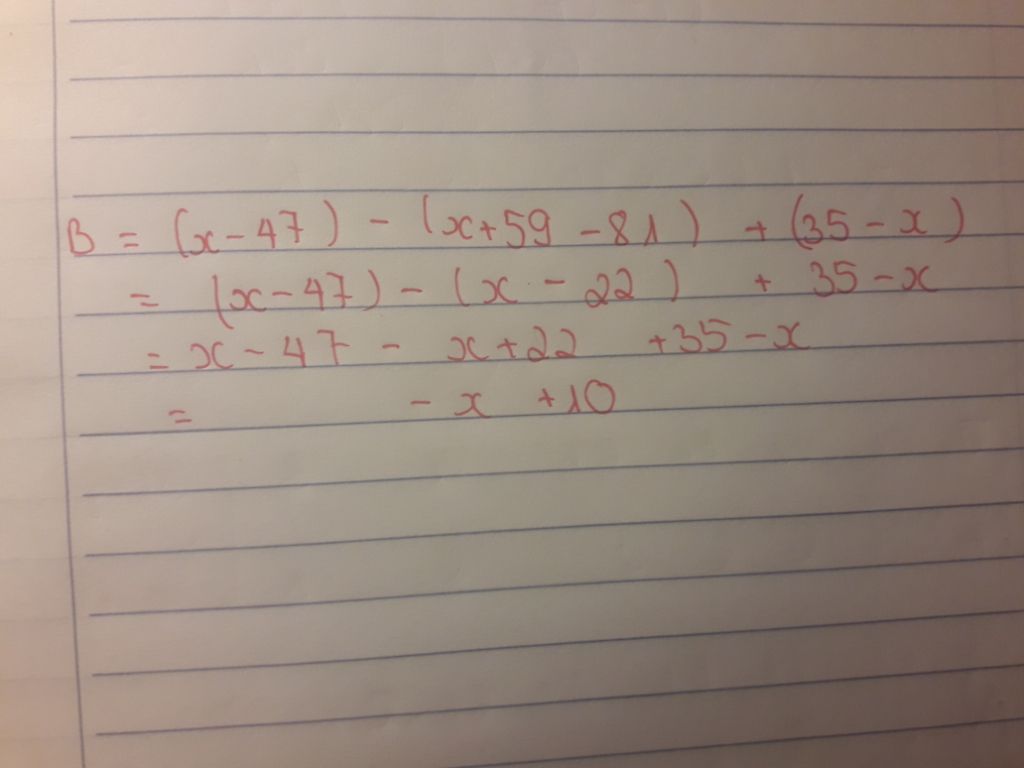 B = (x - 47) - (x + 59 - 81) + (35 - x)
= (x - 47) - (x - 22) + 35 - x
= x - 47 - x + 22 + 35 - x
= - x + 10